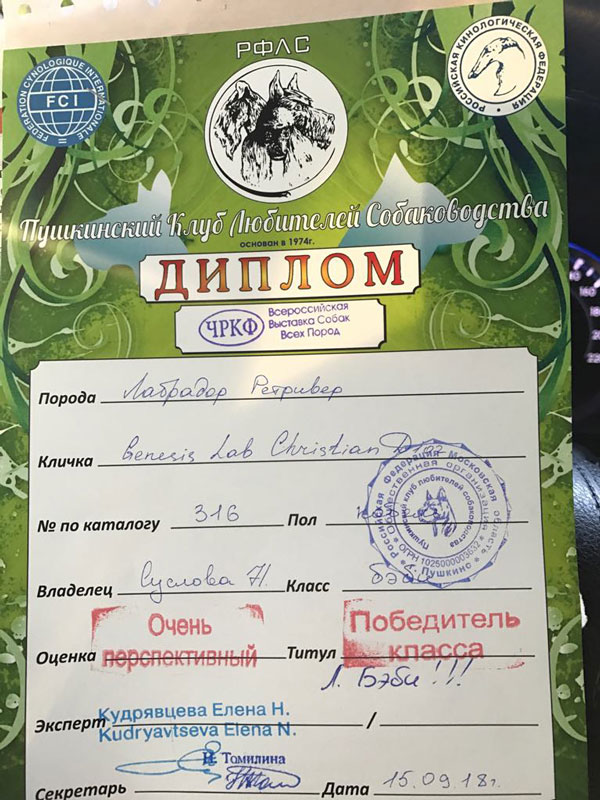 РФЛС
FEDERATION CYNOLOGIQUE INTERNATIONALE
FCI
РОССИЙСКАЯ КИНОЛОГИЧЕСКАЯ ФЕДЕРАЦИЯ
Пушкинский Клуб Любителей Собаководства
основан в 1974г.
ДИПЛОМ
ЧРКФ
Всероссийская
Выставка Собак
Всех Пород
Порода Лабрадор Ретривер
Кличка Genesis Lab Christian
№ по каталогу 316 Пол кобель
Российская Федерация Московская область
Общественная организация
Пушкинский клуб любителей собаководства
ОГРН 1025000003032
г. Пушкино
Владелец Суслова Н. Класс бэби
Оценка Очень перспективный Титул Победитель класса
Л. Бэби!!!
Эксперт Кудрявцева Елена Н. /
Kudryavtseva Elena N.
Н. Томилина
Секретарь Дата 15.09.18г.
160
180